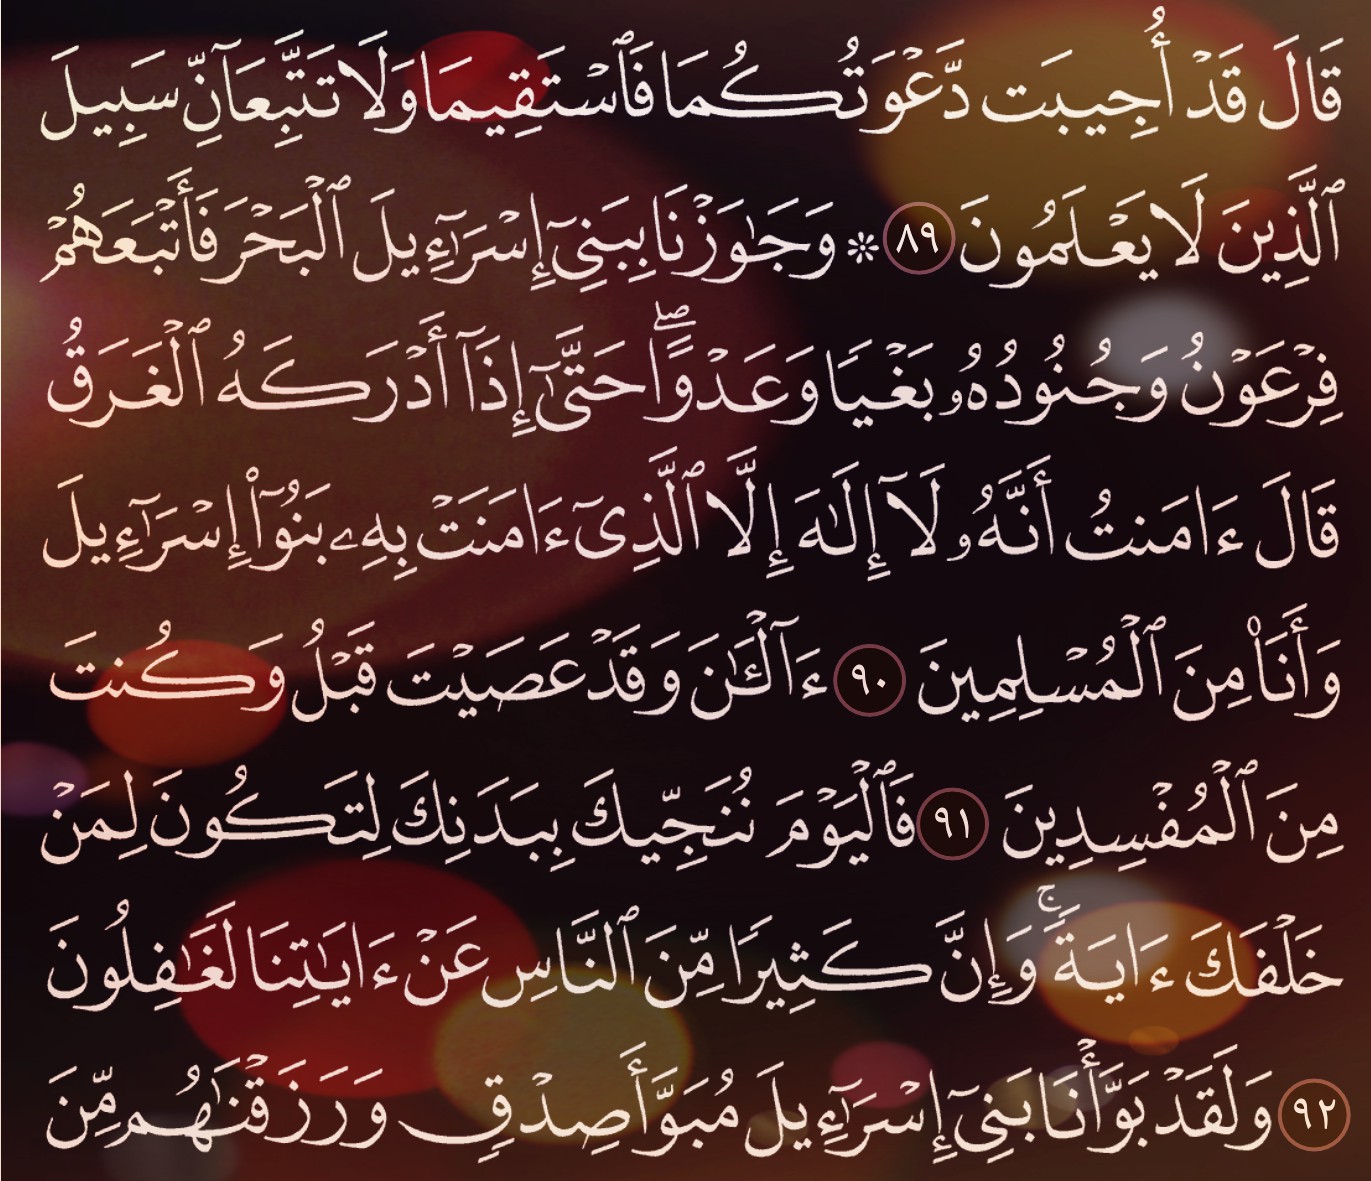 قَالَ قَدۡ أُجِيبَت دَّعۡوَتُكُمَا فَٱسۡتَقِيمَا وَلَا تَتَّبِعَآنِّ سَبِيلَ
ٱلَّذِينَ لَا يَعۡلَمُونَ ٨٩ ۞ وَجَٰوَزۡنَا بِبَنِيٓ إِسۡرَٰٓءِيلَ ٱلۡبَحۡرَ فَأَتۡبَعَهُمۡ
فِرۡعَوۡنُ وَجُنُودُهُۥ بَغۡيٗا وَعَدۡوًاۖ حَتَّىٰٓ إِذَآ أَدۡرَكَهُ ٱلۡغَرَقُ
قَالَ ءَامَنتُ أَنَّهُۥ لَآ إِلَٰهَ إِلَّا ٱلَّذِيٓ ءَامَنَتۡ بِهِۦ بَنُوٓاْ إِسۡرَٰٓءِيلَ
وَأَنَا۠ مِنَ ٱلۡمُسۡلِمِينَ ٩٠ ءَآلۡـَٰٔنَ وَقَدۡ عَصَيۡتَ قَبۡلُ وَكُنتَ
مِنَ ٱلۡمُفۡسِدِينَ ٩١ فَٱلۡيَوۡمَ نُنَجِّيكَ بِبَدَنِكَ لِتَكُونَ لِمَنۡ
خَلۡفَكَ ءَايَةٗۚ وَإِنَّ كَثِيرٗا مِّنَ ٱلنَّاسِ عَنۡ ءَايَٰتِنَا لَغَٰفِلُونَ
٩٢ وَلَقَدۡ بَوَّأۡنَا بَنِيٓ إِسۡرَٰٓءِيلَ مُبَوَّأَ صِدۡقٖ وَرَزَقۡنَٰهُم مِّنَ